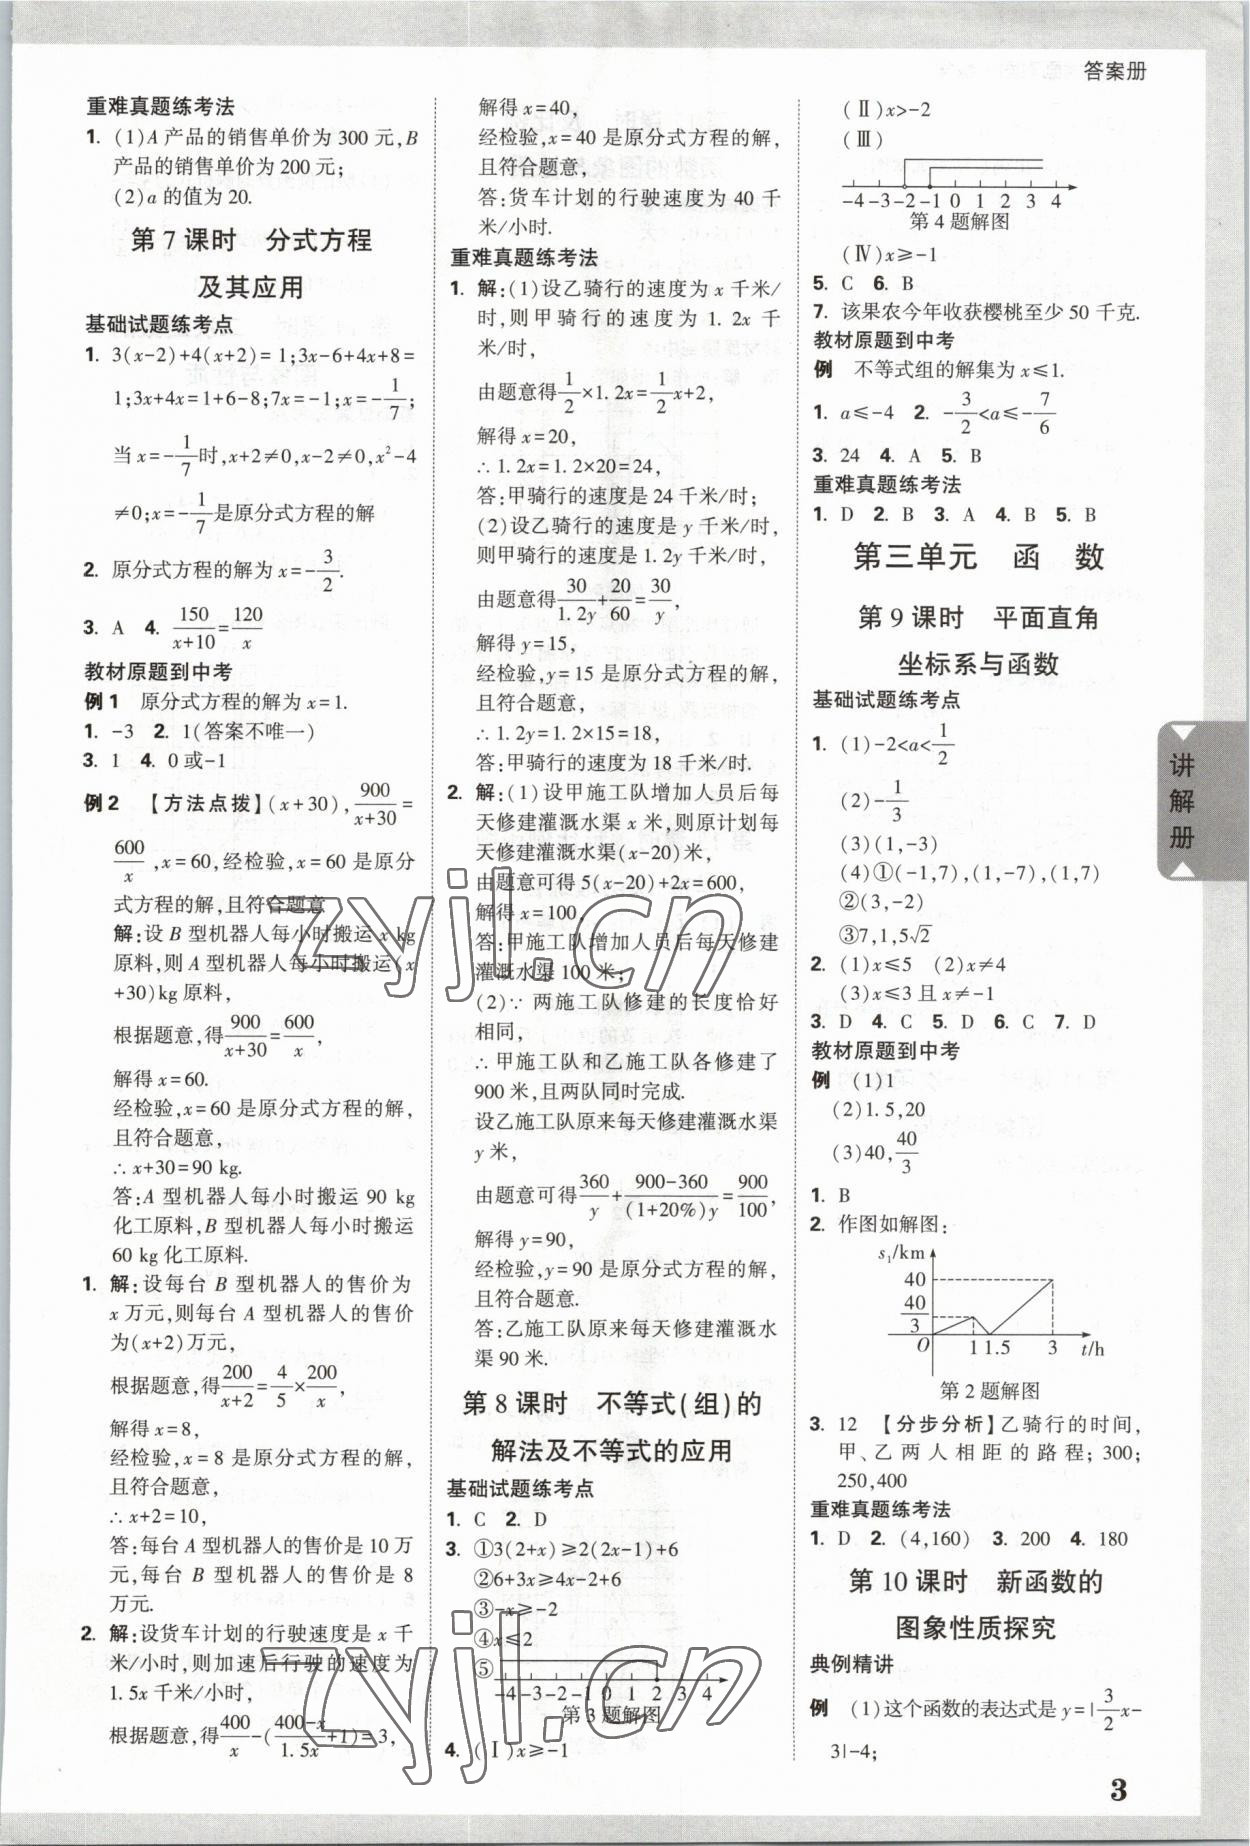 答案册
重难真题练考法
1. (1)A产品的销售单价为300元,B
产品的销售单价为200元;
(2)a的值为20.
第7课时　分式方程
及其应用
基础试题练考点
1. 3(x-2)+4(x+2)=1;3x-6+4x+8=
1;3x+4x=1+6-8;7x=-1;x=-1/7;
当x=-1/7时,x+2≠0,x-2≠0,x²-4
≠0;x=-1/7是原分式方程的解
2. 原分式方程的解为x=-3/2.
3. A　4. 150/(x+10)=120/x
教材原题到中考
例1　原分式方程的解为x=1.
1. -3　2. 1(答案不唯一)
3. 1　4. 0或-1
例2　【方法点拨】(x+30),900/(x+30)=
600/x,x=60,经检验,x=60是原分
式方程的解,且符合题意
解:设B型机器人每小时搬运x kg
原料,则A型机器人每小时搬运(x
+30)kg原料,
根据题意,得900/(x+30)=600/x,
解得x=60.
经检验,x=60是原分式方程的解,
且符合题意,
∴x+30=90 kg.
答:A型机器人每小时搬运90 kg
化工原料,B型机器人每小时搬运
60 kg化工原料.
1. 解:设每台B型机器人的售价为
x万元,则每台A型机器人的售价
为(x+2)万元,
根据题意,得200/(x+2)=4/5×200/x,
解得x=8,
经检验,x=8是原分式方程的解,
且符合题意,
∴x+2=10,
答:每台A型机器人的售价是10万
元,每台B型机器人的售价是8
万元.
2. 解:设货车计划的行驶速度是x千
米/小时,则加速后行驶的速度为
1.5x千米/小时,
根据题意,得400/x-((400-x)/1.5x+1)=3,
解得x=40,
经检验,x=40是原分式方程的解,
且符合题意,
答:货车计划的行驶速度为40千
米/小时.
重难真题练考法
1. 解:(1)设乙骑行的速度为x千米/
时,则甲骑行的速度为1.2x千
米/时,
由题意得1/2×1.2x=1/2x+2,
解得x=20,
∴1.2x=1.2×20=24,
答:甲骑行的速度是24千米/时;
(2)设乙骑行的速度是y千米/时,
则甲骑行的速度是1.2y千米/时,
由题意得30/1.2y+20/60=30/y,
解得y=15,
经检验,y=15是原分式方程的解,
且符合题意,
∴1.2y=1.2×15=18,
答:甲骑行的速度为18千米/时.
2. 解:(1)设甲施工队增加人员后每
天修建灌溉水渠x米,则原计划每
天修建灌溉水渠(x-20)米,
由题意可得5(x-20)+2x=600,
解得x=100,
答:甲施工队增加人员后每天修建
灌溉水渠100米;
(2)∵两施工队修建的长度恰好
相同,
∴甲施工队和乙施工队各修建了
900米,且两队同时完成.
设乙施工队原来每天修建灌溉水渠
y米,
由题意可得360/y+(900-360)/(1+20%)y=900/100,
解得y=90,
经检验,y=90是原分式方程的解,
且符合题意.
答:乙施工队原来每天修建灌溉水
渠90米.
第8课时　不等式(组)的
解法及不等式的应用
基础试题练考点
1. C　2. D
3. ①3(2+x)≥2(2x-1)+6
②6+3x≥4x-2+6
③-x≥-2
④x≤2
⑤
-4 -3 -2 -1 0 1 2 3 4
第3题解图
4. (Ⅰ)x≥-1
(Ⅱ)x>-2
(Ⅲ)
-4 -3 -2 -1 0 1 2 3 4
第4题解图
(Ⅳ)x≥-1
5. C　6. B
7. 该果农今年收获樱桃至少50千克.
教材原题到中考
例　不等式组的解集为x≤1.
1. a≤-4　2. -3/2<a≤-7/6
3. 24　4. A　5. B
重难真题练考法
1. D　2. B　3. A　4. B　5. B
第三单元　函　数
第9课时　平面直角
坐标系与函数
基础试题练考点
1. (1)-2<a<1/2
(2)-1/3
(3)(1,-3)
(4)①(-1,7),(1,-7),(1,7)
②(3,-2)
③7,1,5√2
2. (1)x≤5　(2)x≠4
(3)x≤3且x≠-1
3. D　4. C　5. D　6. C　7. D
教材原题到中考
例　(1)1
(2)1.5,20
(3)40,40/3
1. B
2. 作图如解图:
s₁/km
40
40/3
O　1　1.5　3　t/h
第2题解图
3. 12　【分步分析】乙骑行的时间,
甲、乙两人相距的路程;300;
250,400
重难真题练考法
1. D　2. (4,160)　3. 200　4. 180
第10课时　新函数的
图象性质探究
典例精讲
例　(1)这个函数的表达式是y=|3/2x-
3|-4;
讲解册
3
zyjl.cn
zyjl.cn